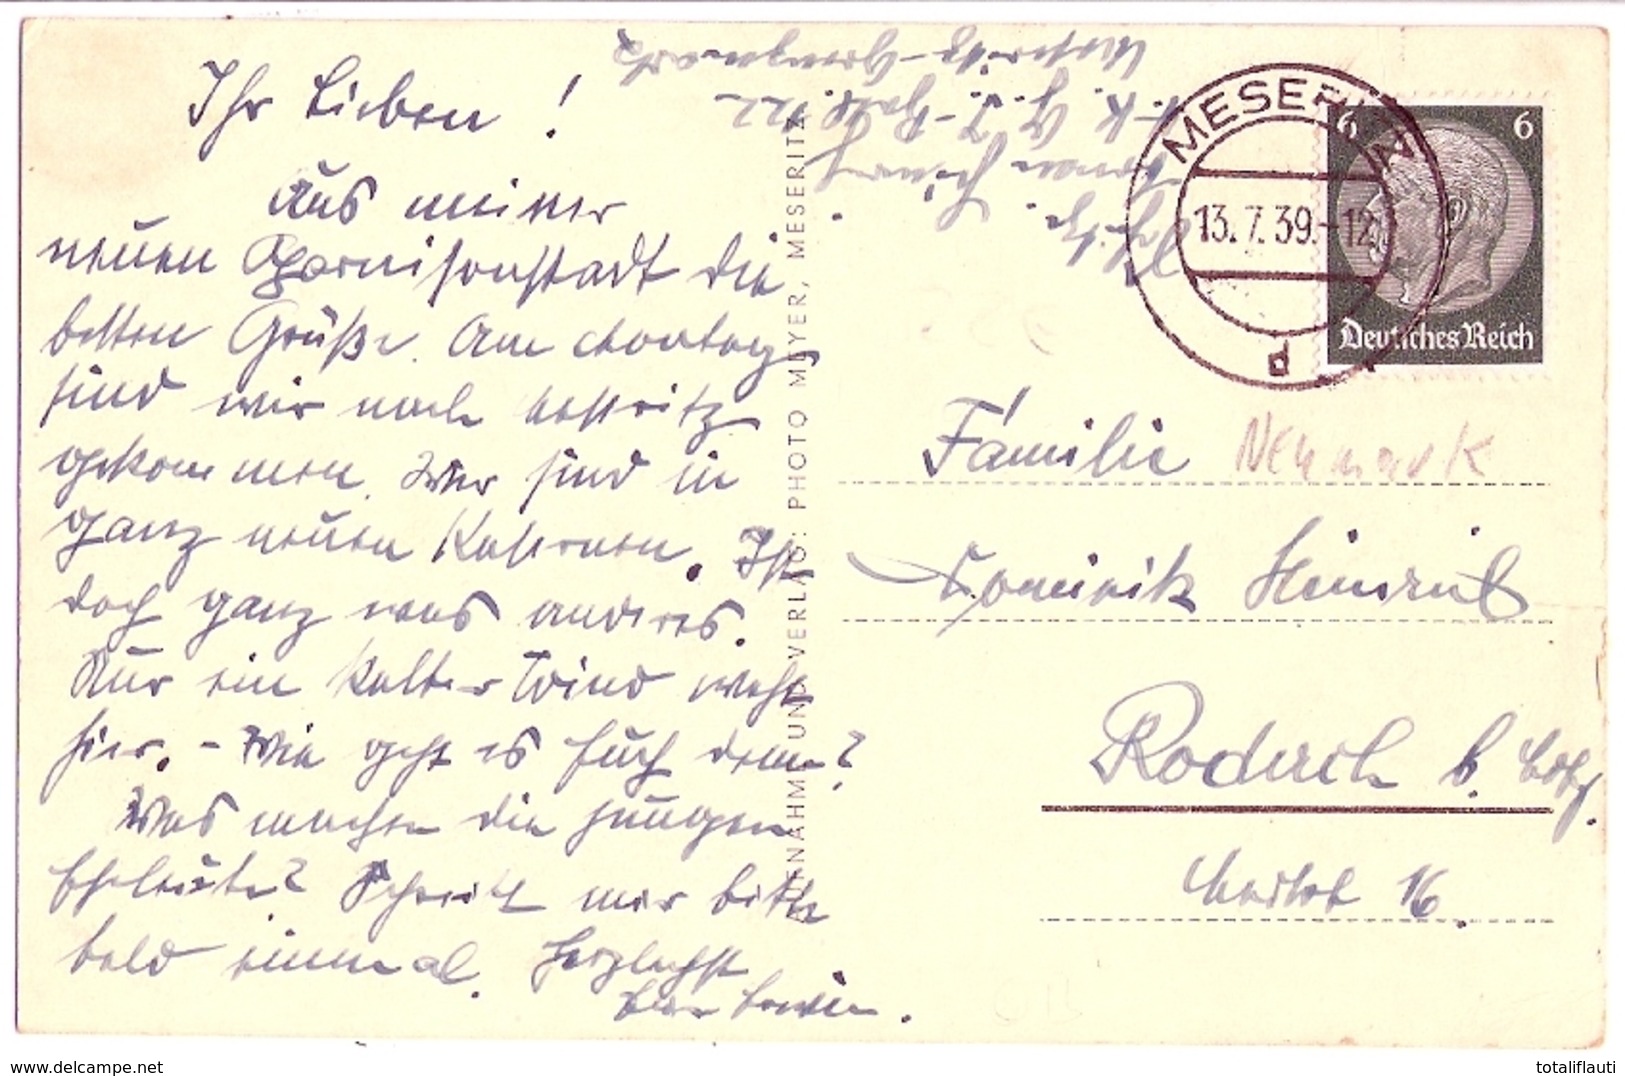 Ihr Lieben!
Aus meiner
neuen Garnisonstadt die
besten Grüße. Am Montag
sind wir nach Meseritz
gekommen. Wir sind in
ganz neuen Kasernen. Ist
doch ganz was anderes.
Nur ein kalter Wind weht
hier. - Wie geht es Euch denn?
Was machen die jungen
Eheleute? Schreibt mir bitte
bald einmal. Herzlichst
Euer Erwin.
AUFNAHME UND VERLAG: PHOTO MEYER, MESERITZ
MESERITZ
13.7.39.-12
d
6 6
Deutsches Reich
Familie Neumark
Dominik Heinrich
Roderich b. Cobg.
16.
totaliflauti